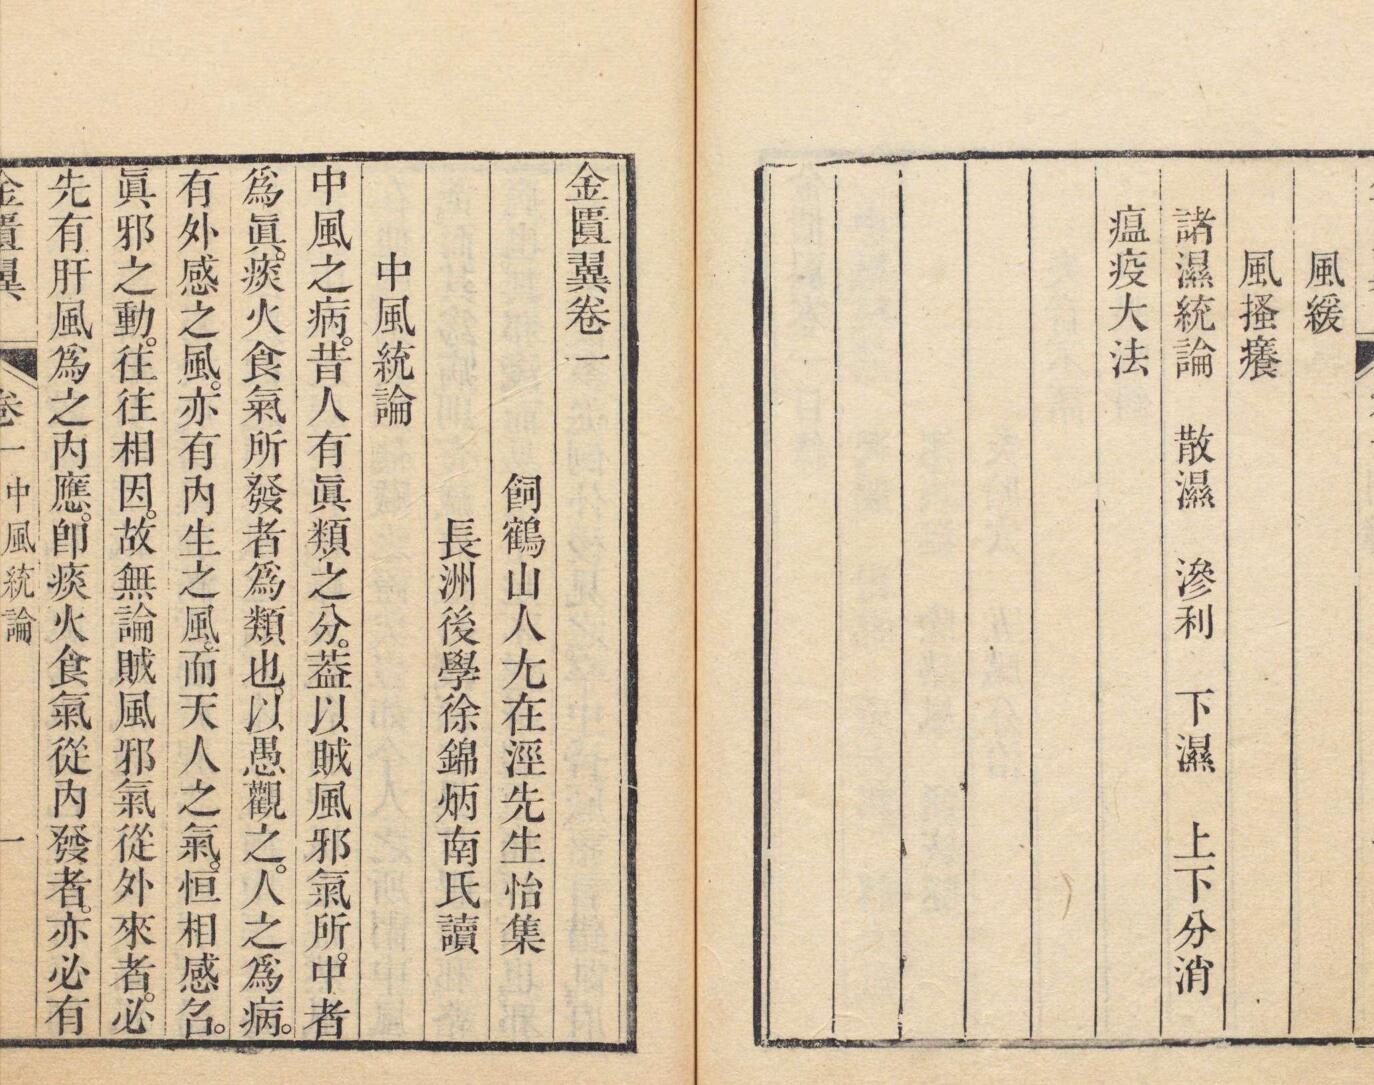 風緩
風搔癢
諸濕統論　散濕　滲利　下濕　上下分消
瘟疫大法
金匱翼卷一
飼鶴山人尤在涇先生怡集
長洲後學徐錦炳南氏讀
中風統論
中風之病。昔人有眞類之分。葢以賊風邪氣所。中者
爲眞。痰火食氣所發者爲類也。以愚觀之。人之爲病。
有外感之風。亦有內生之風。而天人之氣。恒相感名。
眞邪之動。往往相因。故無論賊風邪氣從外來者。必
先有肝風爲之內應。卽痰火食氣從內發者。亦必有
金匱翼　卷一　中風統論　一